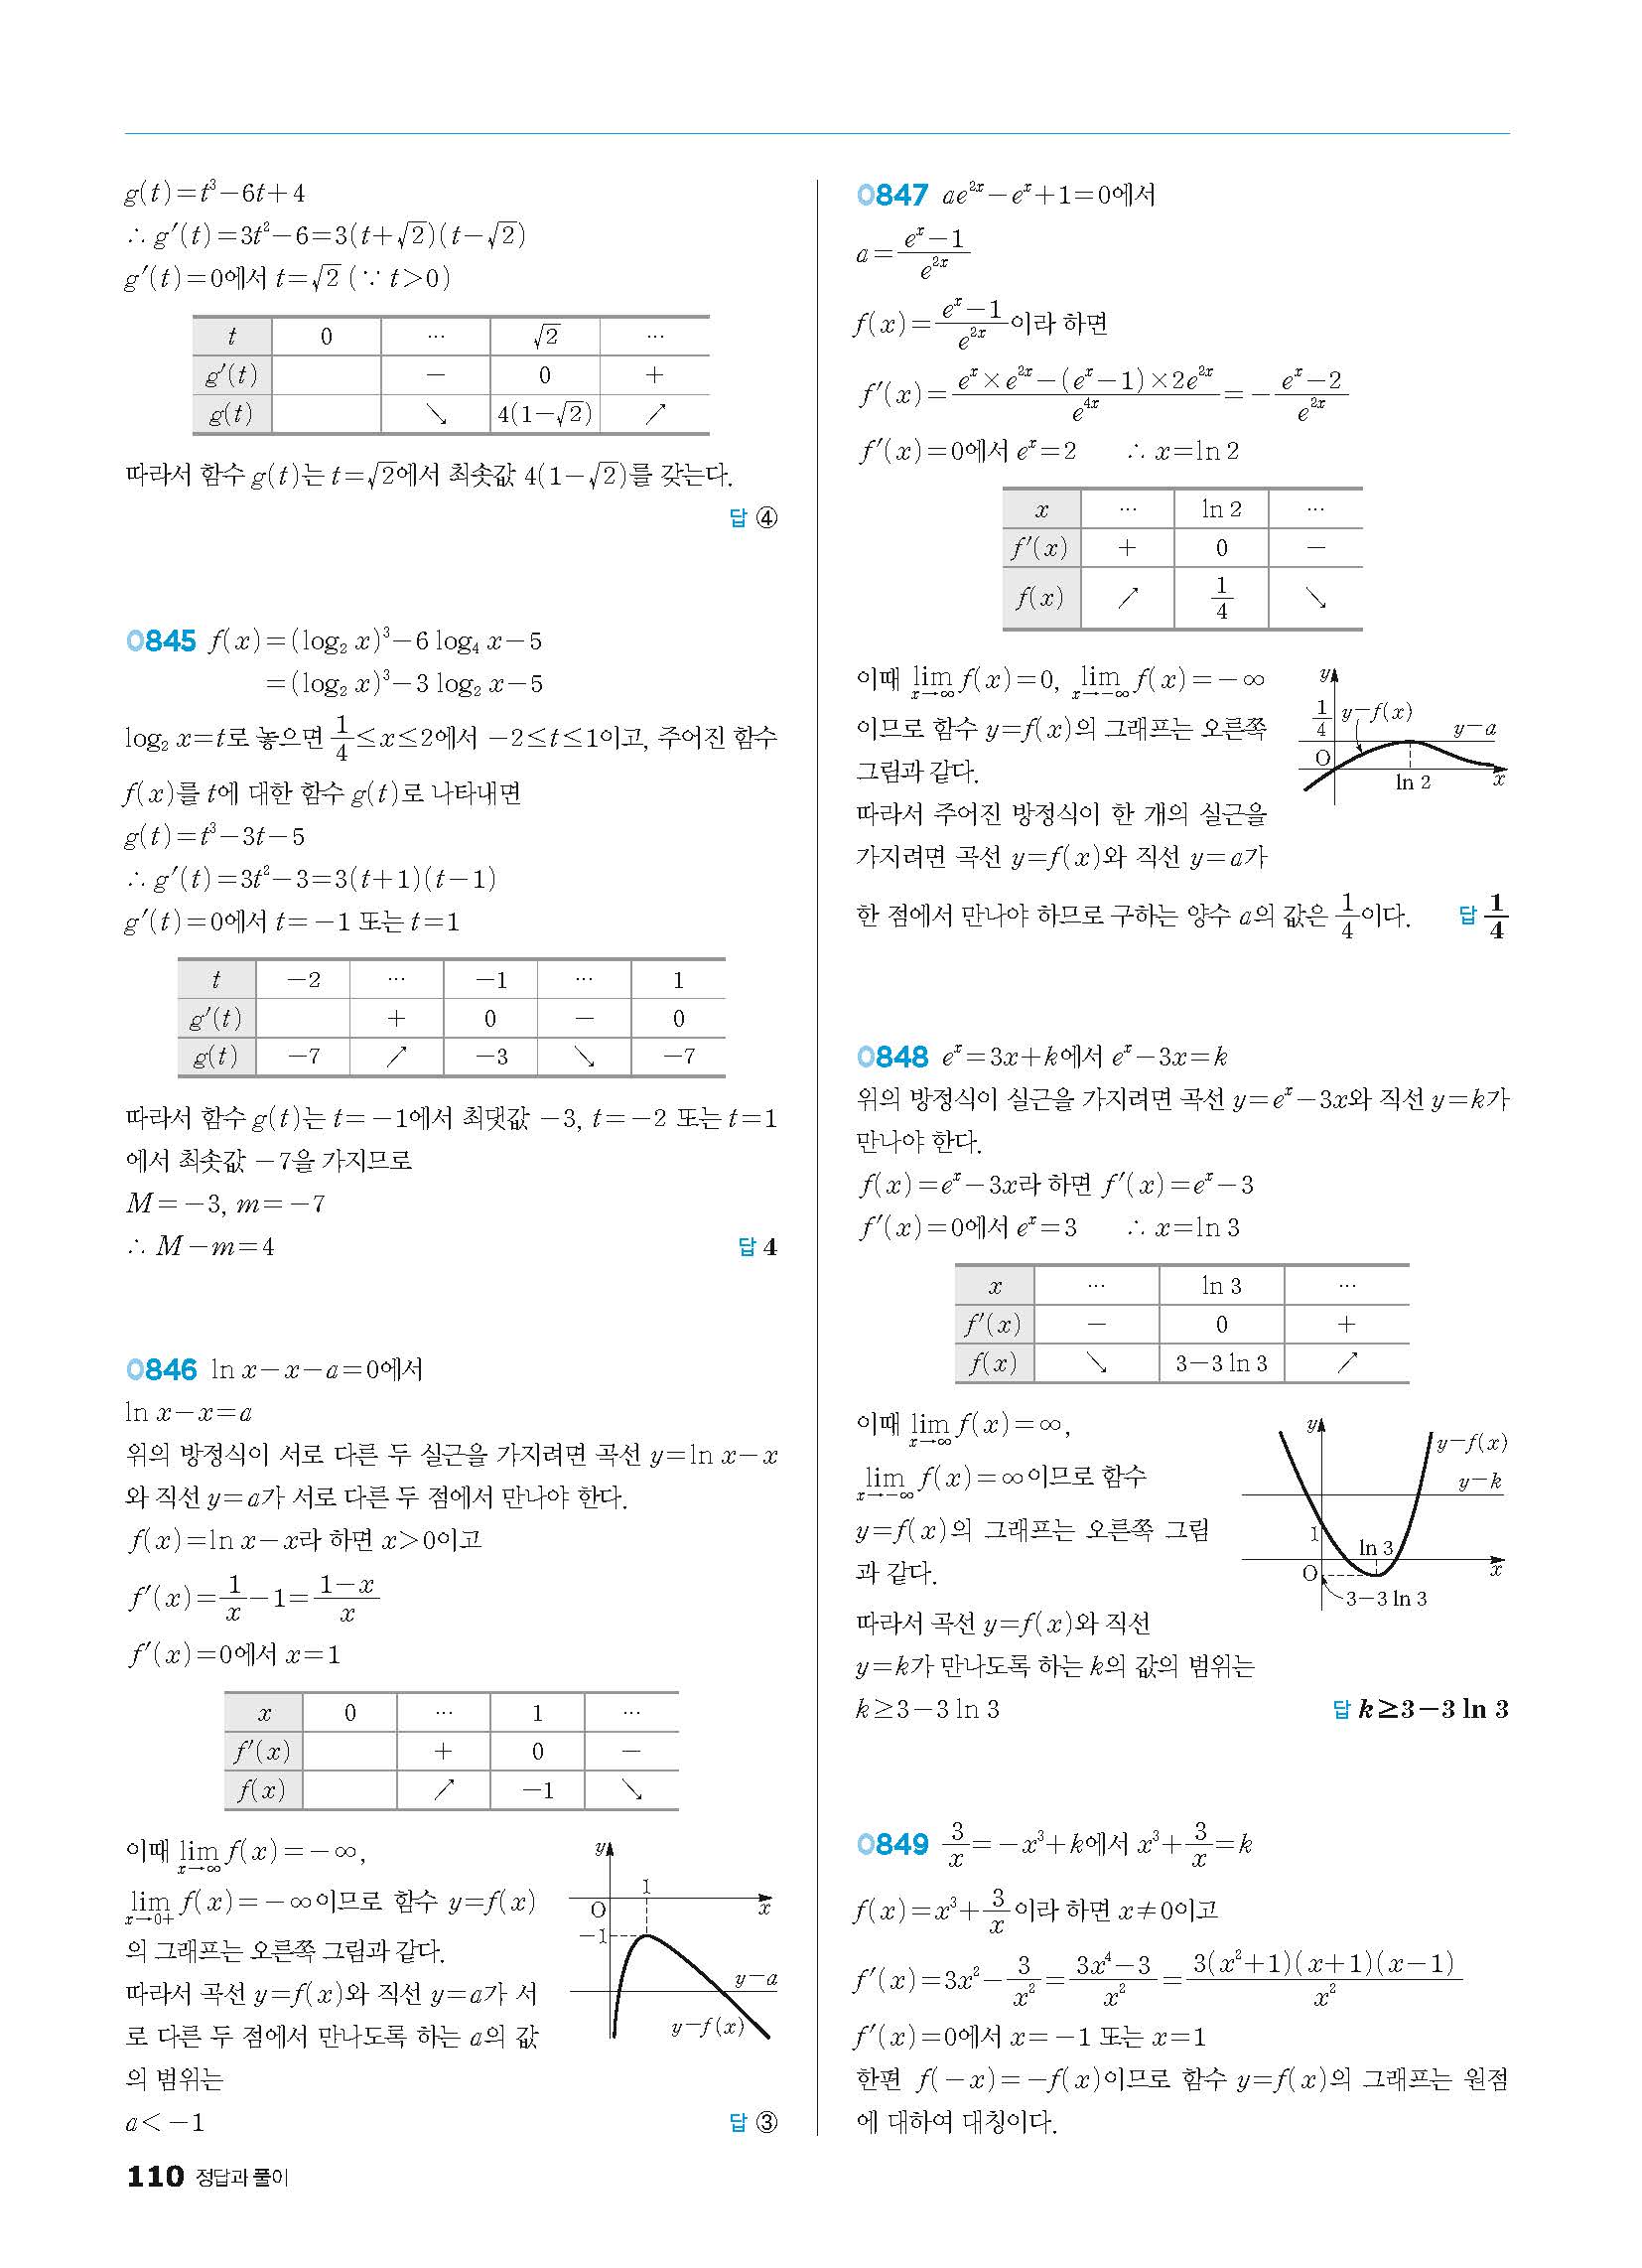 g(t)=t³-6t+4
∴ g′(t)=3t²-6=3(t+√2)(t-√2)
g′(t)=0에서 t=√2 (∵ t>0)
t 0 ⋯ √2 ⋯
g′(t) - 0 +
g(t) ↘ 4(1-√2) ↗
따라서 함수 g(t)는 t=√2에서 최솟값 4(1-√2)를 갖는다.
답 ④
0845 f(x)=(log₂ x)³-6 log₄ x-5
=(log₂ x)³-3 log₂ x-5
log₂ x=t로 놓으면 1/4≤x≤2에서 -2≤t≤1이고, 주어진 함수
f(x)를 t에 대한 함수 g(t)로 나타내면
g(t)=t³-3t-5
∴ g′(t)=3t²-3=3(t+1)(t-1)
g′(t)=0에서 t=-1 또는 t=1
t -2 ⋯ -1 ⋯ 1
g′(t) + 0 - 0
g(t) -7 ↗ -3 ↘ -7
따라서 함수 g(t)는 t=-1에서 최댓값 -3, t=-2 또는 t=1
에서 최솟값 -7을 가지므로
M=-3, m=-7
∴ M-m=4 답 4
0846 ln x-x-a=0에서
ln x-x=a
위의 방정식이 서로 다른 두 실근을 가지려면 곡선 y=ln x-x
와 직선 y=a가 서로 다른 두 점에서 만나야 한다.
f(x)=ln x-x라 하면 x>0이고
f′(x)=1/x-1=(1-x)/x
f′(x)=0에서 x=1
x 0 ⋯ 1 ⋯
f′(x) + 0 -
f(x) ↗ -1 ↘
이때 lim_{x→∞} f(x)=-∞,
lim_{x→0+} f(x)=-∞이므로 함수 y=f(x)
의 그래프는 오른쪽 그림과 같다.
따라서 곡선 y=f(x)와 직선 y=a가 서
로 다른 두 점에서 만나도록 하는 a의 값
의 범위는
a<-1 답 ③
y
1
O x
-1
y=a
y=f(x)
110 정답과 풀이
0847 ae²ˣ-eˣ+1=0에서
a=(eˣ-1)/e²ˣ
f(x)=(eˣ-1)/e²ˣ이라 하면
f′(x)=(eˣ×e²ˣ-(eˣ-1)×2e²ˣ)/e⁴ˣ=-(eˣ-2)/e²ˣ
f′(x)=0에서 eˣ=2 ∴ x=ln 2
x ⋯ ln 2 ⋯
f′(x) + 0 -
f(x) ↗ 1/4 ↘
이때 lim_{x→∞} f(x)=0, lim_{x→-∞} f(x)=-∞
이므로 함수 y=f(x)의 그래프는 오른쪽
그림과 같다.
따라서 주어진 방정식이 한 개의 실근을
가지려면 곡선 y=f(x)와 직선 y=a가
한 점에서 만나야 하므로 구하는 양수 a의 값은 1/4이다. 답 1/4
y
1/4 y=f(x)
y=a
O
ln 2 x
0848 eˣ=3x+k에서 eˣ-3x=k
위의 방정식이 실근을 가지려면 곡선 y=eˣ-3x와 직선 y=k가
만나야 한다.
f(x)=eˣ-3x라 하면 f′(x)=eˣ-3
f′(x)=0에서 eˣ=3 ∴ x=ln 3
x ⋯ ln 3 ⋯
f′(x) - 0 +
f(x) ↘ 3-3 ln 3 ↗
이때 lim_{x→∞} f(x)=∞,
lim_{x→-∞} f(x)=∞이므로 함수
y=f(x)의 그래프는 오른쪽 그림
과 같다.
따라서 곡선 y=f(x)와 직선
y=k가 만나도록 하는 k의 값의 범위는
k≥3-3 ln 3 답 k≥3-3 ln 3
y
y=f(x)
y=k
1
ln 3
O x
3-3 ln 3
0849 3/x=-x³+k에서 x³+3/x=k
f(x)=x³+3/x이라 하면 x≠0이고
f′(x)=3x²-3/x²=(3x⁴-3)/x²=3(x²+1)(x+1)(x-1)/x²
f′(x)=0에서 x=-1 또는 x=1
한편 f(-x)=-f(x)이므로 함수 y=f(x)의 그래프는 원점
에 대하여 대칭이다.